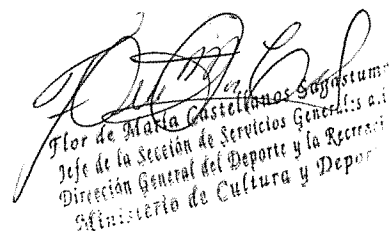 Flor de María Castellanos Sagastum
Jefe de la Sección de Servicios Generales a.i
Dirección General del Deporte y la Recreaci
Ministerio de Cultura y Depor